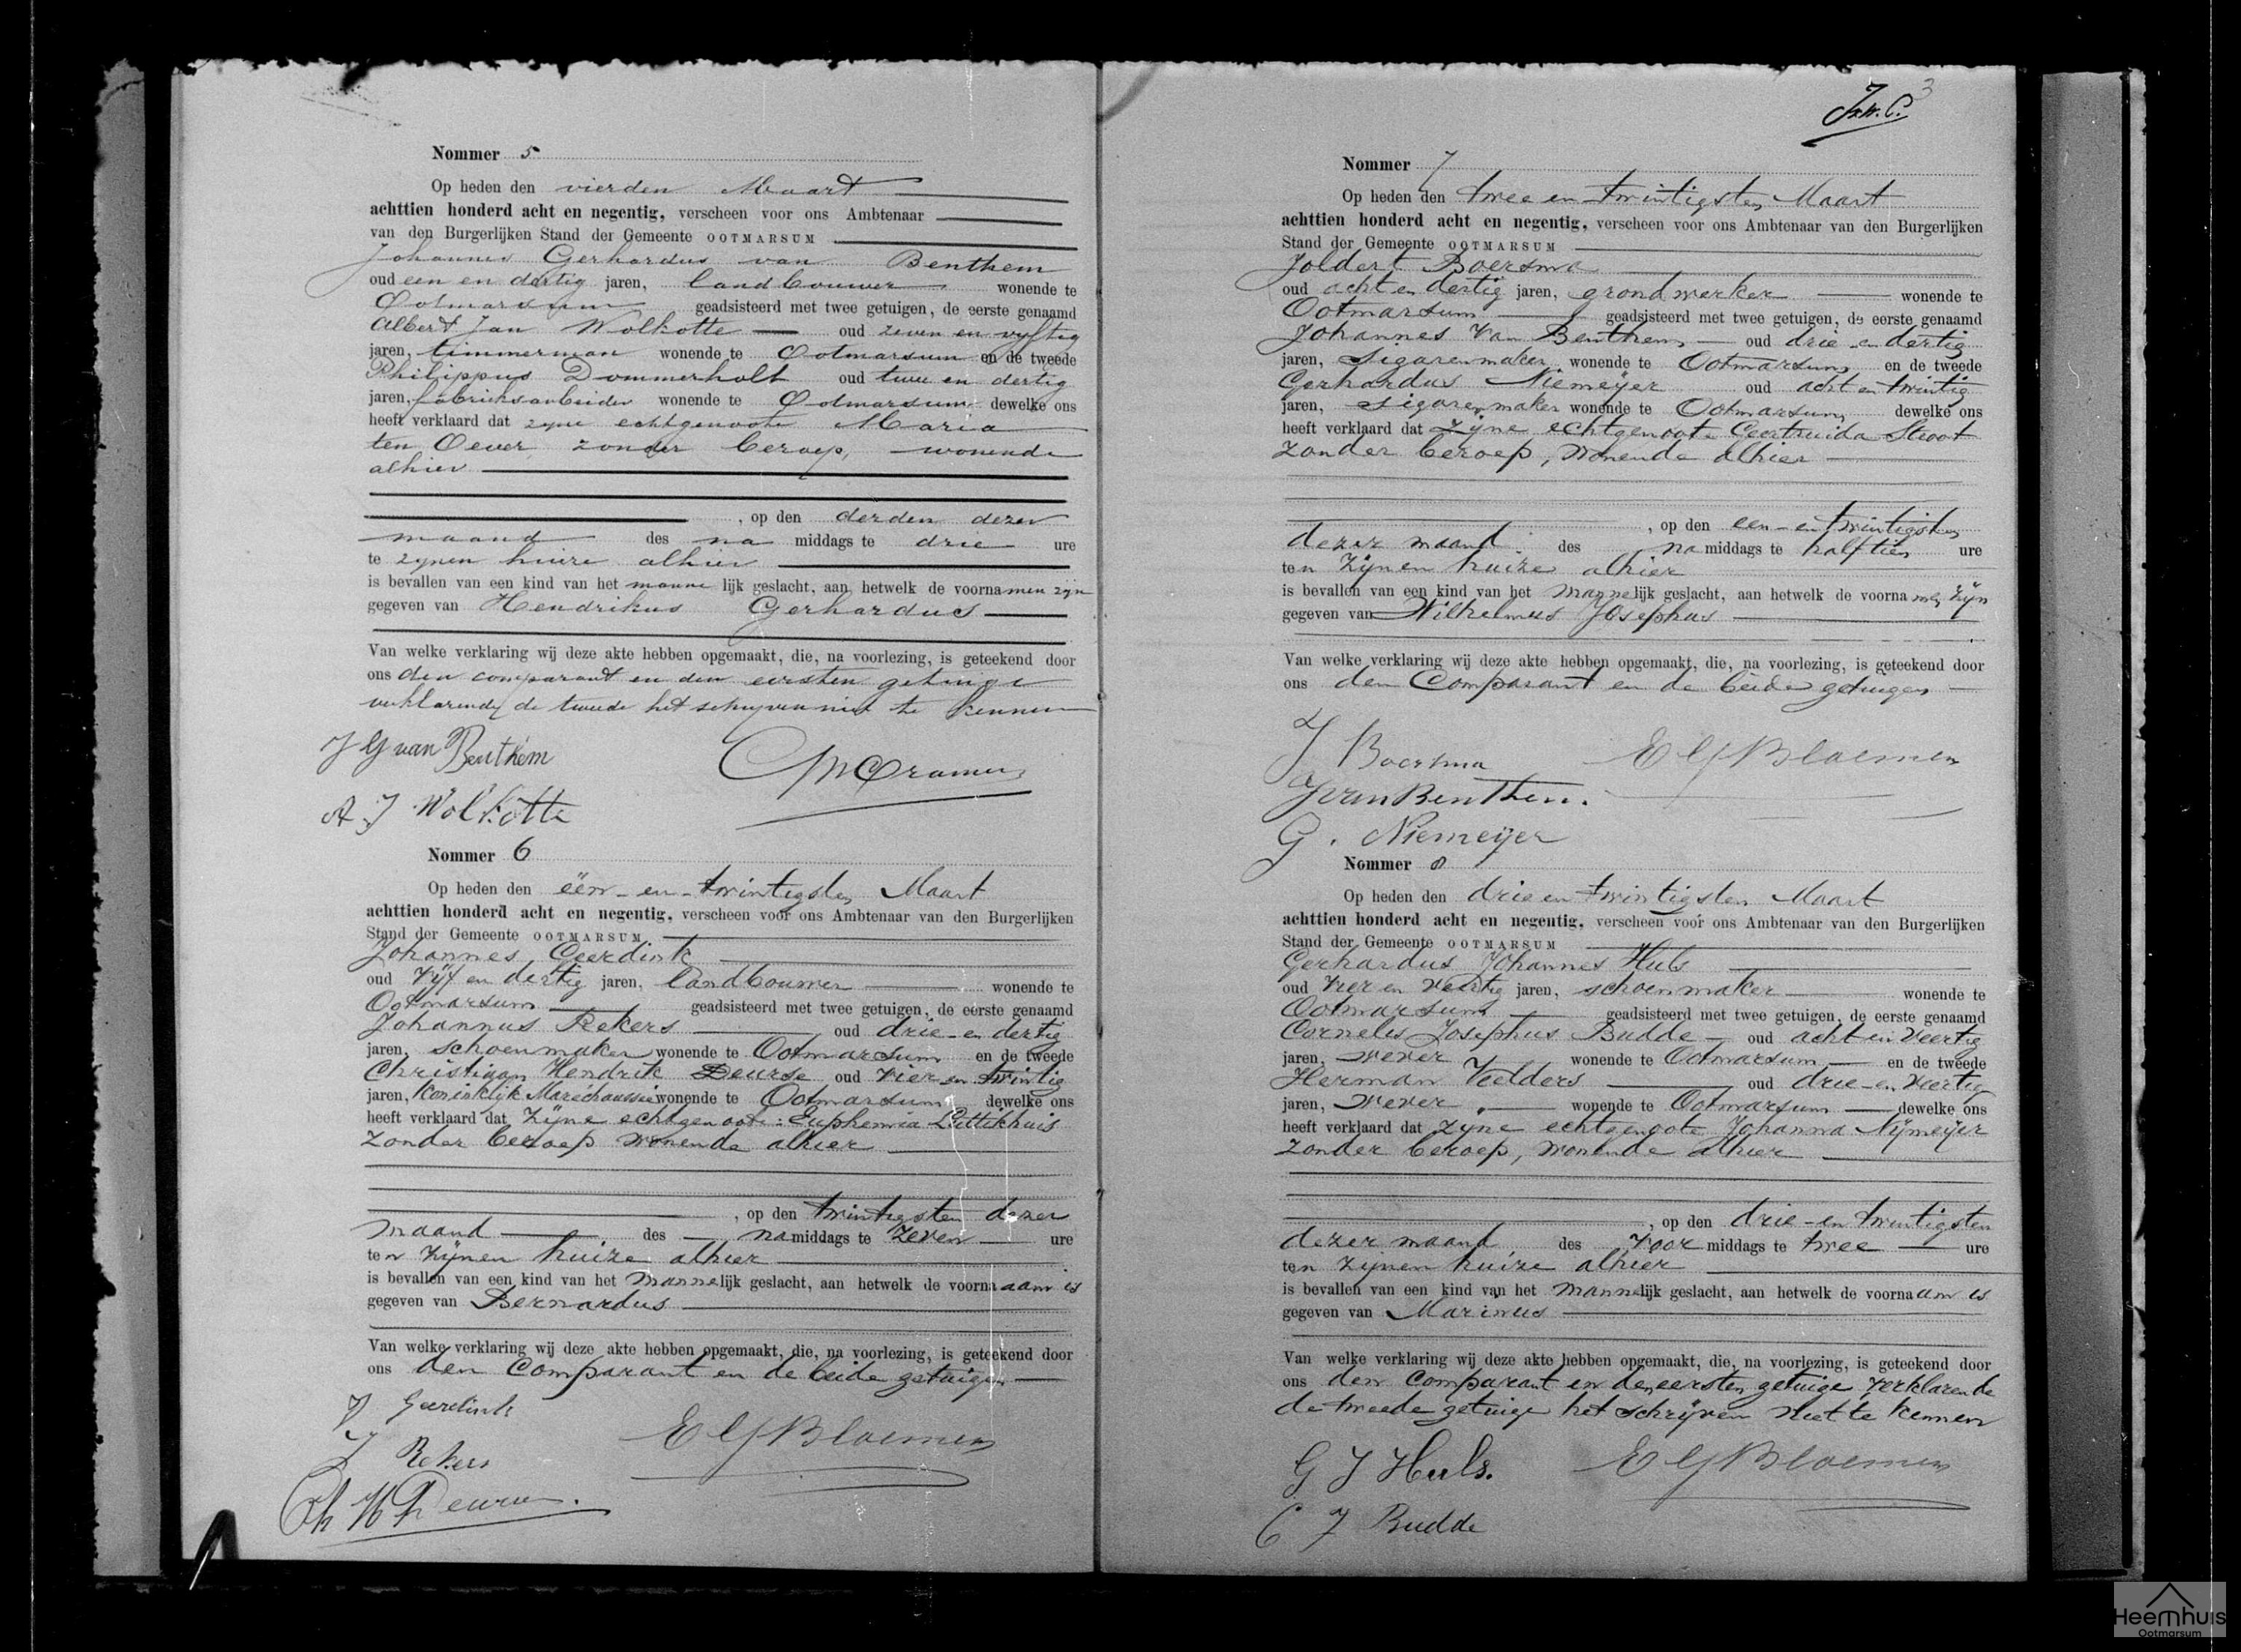 Nommer 5
Op heden den vierden Maart
achttien honderd acht en negentig, verscheen voor ons Ambtenaar
van den Burgerlijken Stand der Gemeente OOTMARSUM
Johannes Gerhardus van Benthem
oud een en dertig jaren, landbouwer wonende te
Ootmarsum geadsisteerd met twee getuigen, de eerste genaamd
Albert Jan Wolkotte oud zeven en vyftig
jaren, timmerman wonende te Ootmarsum en de tweede
Philippus Dommerholt oud twee en dertig
jaren, fabrieksarbeider wonende te Ootmarsum dewelke ons
heeft verklaard dat zyne echtgenoote Maria
ten Oever, zonder beroep, wonende
alhier
, op den derden dezer
maand des na middags te drie ure
te zynen huize alhier
is bevallen van een kind van het mannelijk geslacht, aan hetwelk de voornamen zijn
gegeven van Hendrikus Gerhardus
Van welke verklaring wij deze akte hebben opgemaakt, die, na voorlezing, is geteekend door
ons den comparant en den eersten getuige
verklarende de tweede het schryven niet te kennen
J G van Benthem
Cramer
A. J Wolkotte
Nommer 6
Op heden den één-en-twintigsten Maart
achttien honderd acht en negentig, verscheen voor ons Ambtenaar van den Burgerlijken
Stand der Gemeente OOTMARSUM
Johannes Geerdink
oud vijf en dertig jaren, landbouwer wonende te
Ootmarsum geadsisteerd met twee getuigen, de eerste genaamd
Johannus Rekers oud drie-en dertig
jaren, schoenmaker wonende te Ootmarsum en de tweede
Christiaan Hendrik Deurse oud vier en twintig
jaren, Koninklijk Maréchaussie wonende te Ootmarsum dewelke ons
heeft verklaard dat zijne echtgenoote: Euphemia Luttikhuis
zonder beroep wonende alhier
, op den twintigsten dezer
maand des namiddags te zeven ure
ten zijnen huize alhier
is bevallen van een kind van het mannelijk geslacht, aan hetwelk de voornaam is
gegeven van Bernardus
Van welke verklaring wij deze akte hebben opgemaakt, die, na voorlezing, is geteekend door
ons den Comparant en de beide getuigen
J Geerdink
E G Bloemen
J Rekers
Ch H Deurse
J.W.C. 3
Nommer 7
Op heden den twee en twintigsten Maart
achttien honderd acht en negentig, verscheen voor ons Ambtenaar van den Burgerlijken
Stand der Gemeente OOTMARSUM
Joldert Boersma
oud acht en dertig jaren, grondwerker wonende te
Ootmarsum geadsisteerd met twee getuigen, de eerste genaamd
Johannes Van Benthem oud drie en dertig
jaren, Sigarenmaker wonende te Ootmarsum en de tweede
Gerhardus Niemeijer oud acht en twintig
jaren, Sigarenmaker wonende te Ootmarsum dewelke ons
heeft verklaard dat zijne echtgenoote Geertruida Stroot
zonder beroep, wonende alhier
, op den een-en twintigsten
dezer maand des namiddags te half tien ure
ten zijnen huize alhier
is bevallen van een kind van het mannelijk geslacht, aan hetwelk de voornamen zijn
gegeven van Wilhelmus Josephus
Van welke verklaring wij deze akte hebben opgemaakt, die, na voorlezing, is geteekend door
ons den Comparant en de beide getuigen
J Boersma E G Bloemen
J van Benthem.
G. Niemeijer
Nommer 8
Op heden den drie en twintigsten Maart
achttien honderd acht en negentig, verscheen voor ons Ambtenaar van den Burgerlijken
Stand der Gemeente OOTMARSUM
Gerhardus Johannes Huls
oud vier en veertig jaren, schoenmaker wonende te
Ootmarsum geadsisteerd met twee getuigen, de eerste genaamd
Cornelis Josephus Budde oud acht en veertig
jaren, wever wonende te Ootmarsum en de tweede
Herman Veelders oud drie-en veertig
jaren, wever wonende te Ootmarsum dewelke ons
heeft verklaard dat zyne echtgenoote Johanna Nijmeijer
zonder beroep, wonende alhier
, op den drie-en twintigsten
dezer maand des voor middags te twee ure
ten zynen huize alhier
is bevallen van een kind van het mannelijk geslacht, aan hetwelk de voornaam is
gegeven van Marinus
Van welke verklaring wij deze akte hebben opgemaakt, die, na voorlezing, is geteekend door
ons den Comparant en den eersten getuige verklarende
de tweede getuige het schrijven niet te kennen
G J Huls. E G Bloemen
C J Budde
Heemhuis
Ootmarsum